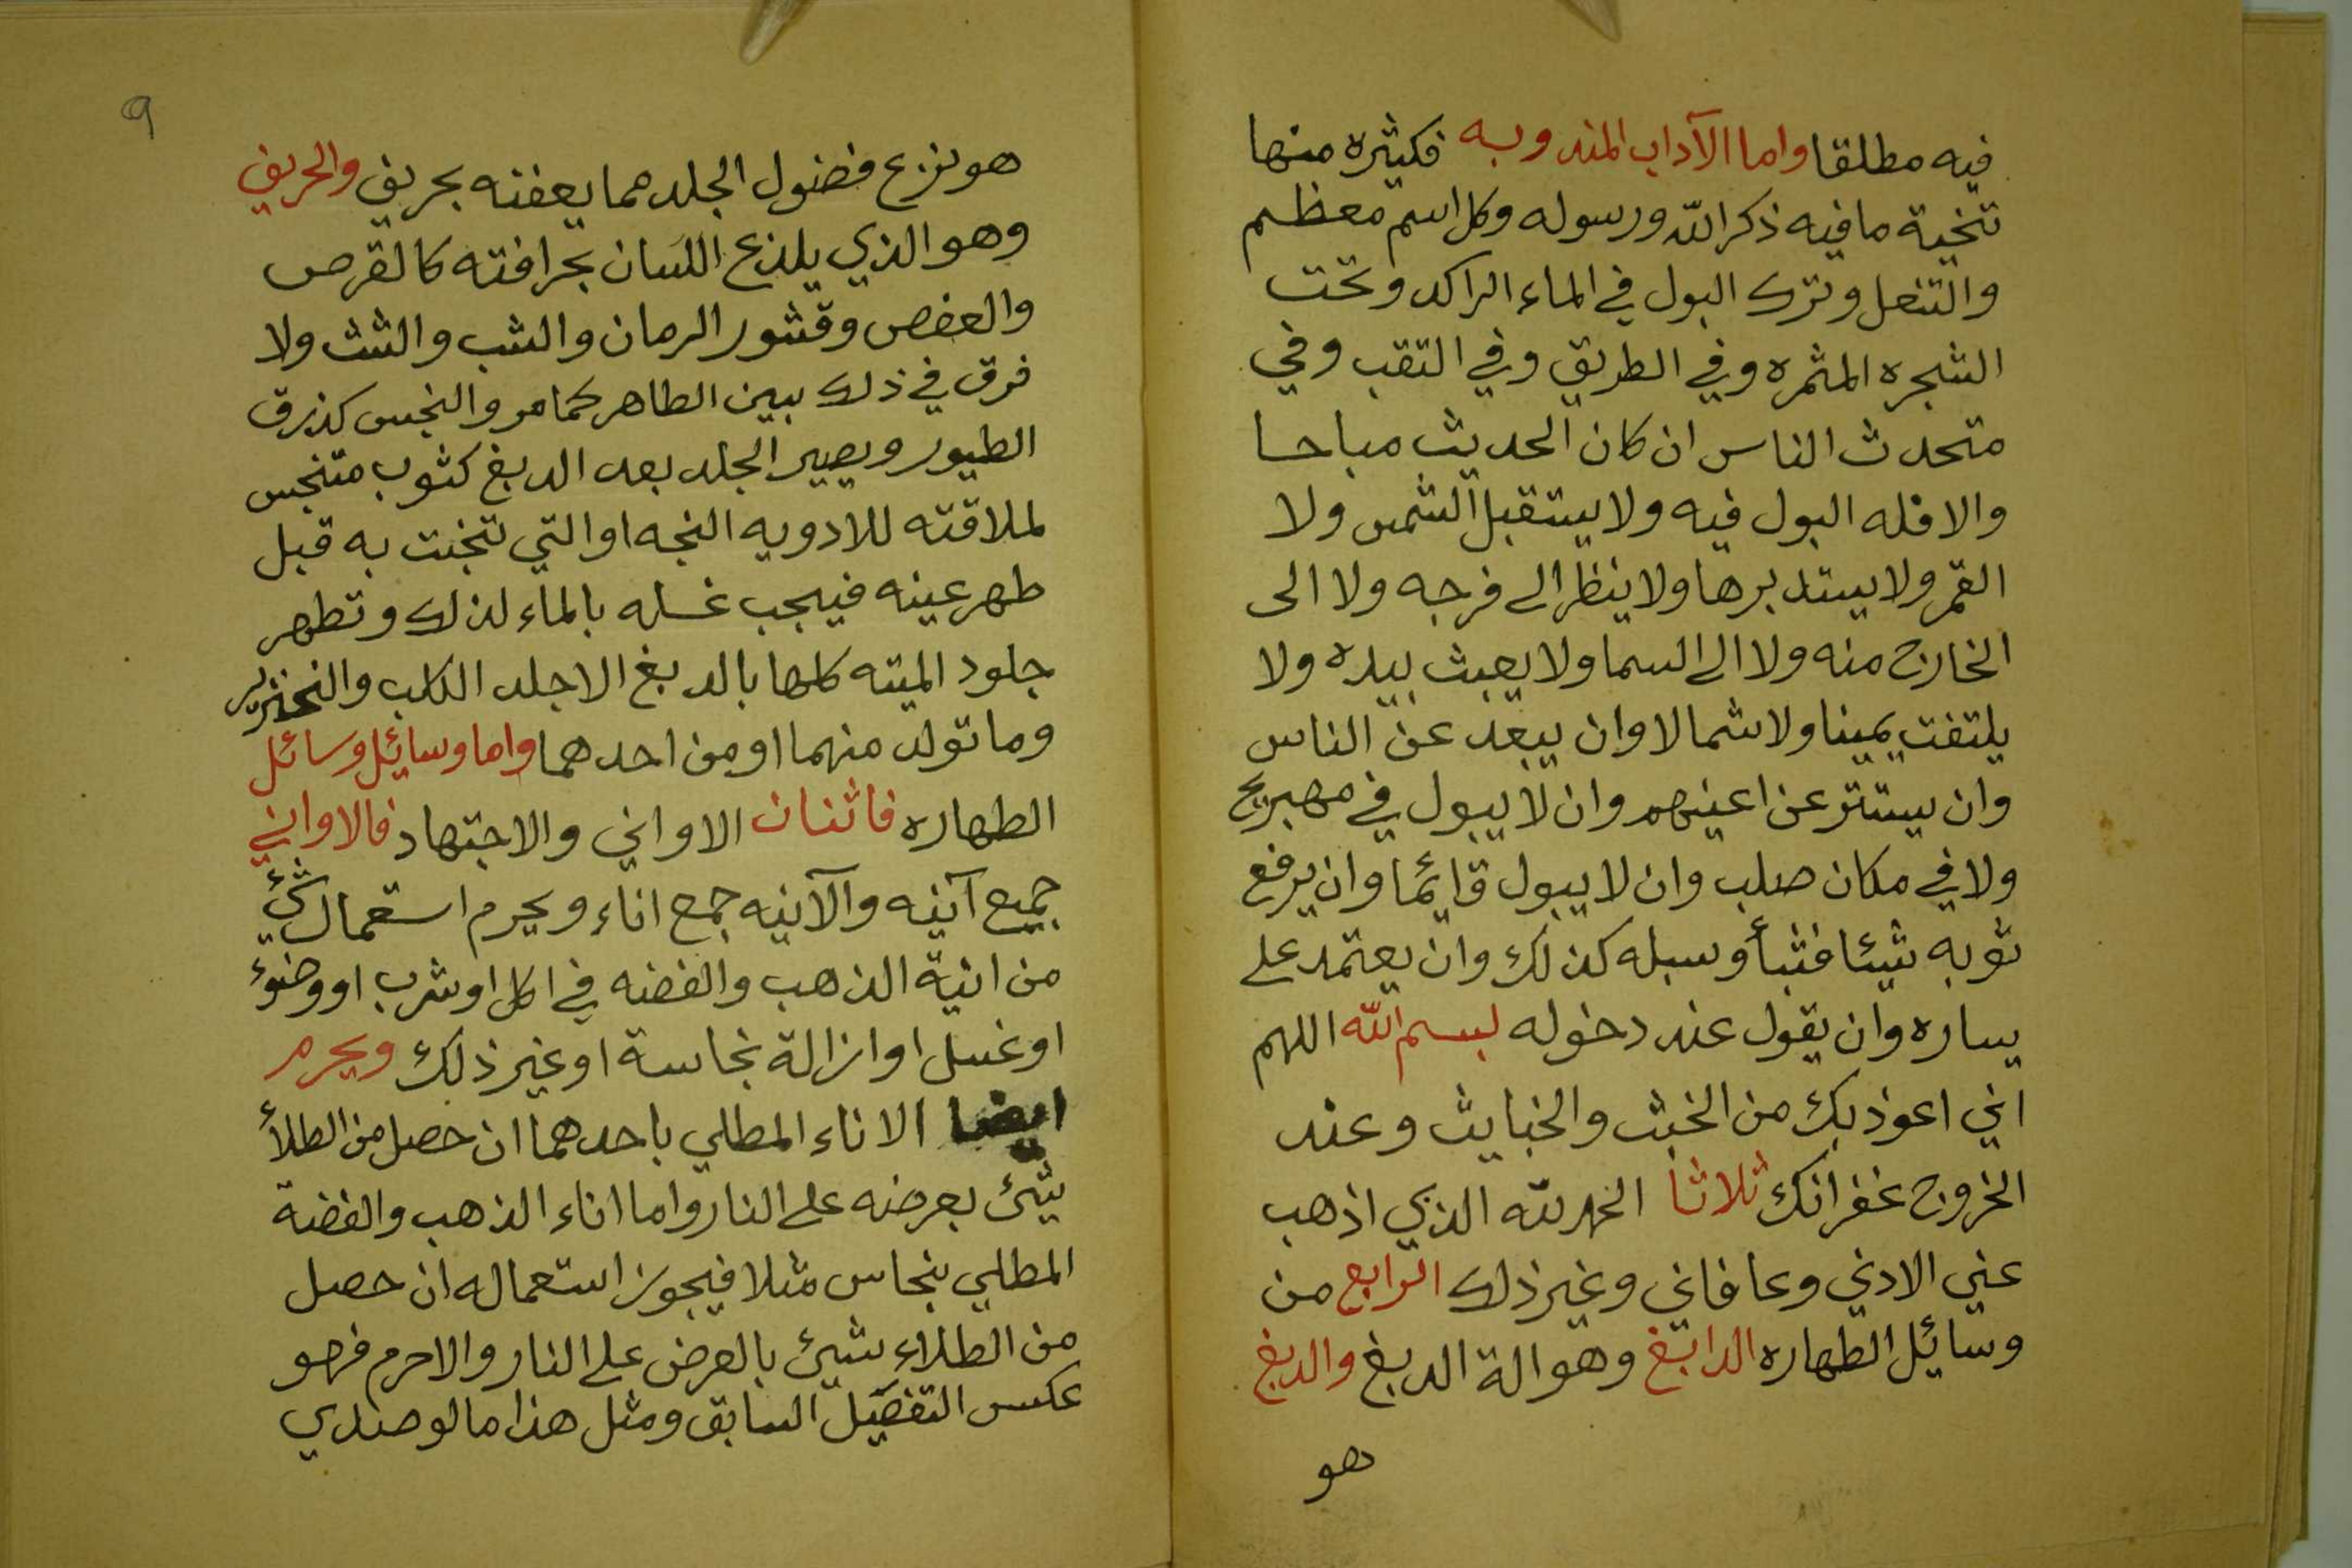 فيه مطلقا واما الآداب المندوبه فكثيره منها
تنحية ما فيه ذكر الله ورسوله وكل اسم معظم
والتنعل وترك البول في الماء الراكد وتحت
الشجره المثمره وفي الطريق وفي الثقب وفي
متحدث الناس ان كان الحديث مباحا
والا فله البول فيه ولا يستقبل الشمس ولا
القمر ولا يستدبرها ولا ينظر الى فرجه ولا الى
الخارج منه ولا الى السما ولا يعبث بيده ولا
يلتفت يمينا ولا شمالا وان يبعد عن الناس
وان يستتر عن اعينهم وان لا يبول في مهب ريح
ولا في مكان صلب وان لا يبول قائما وان يرفع
ثوبه شيئا فشيأ وسبله كذلك وان يعتمد على
يساره وان يقول عند دخوله لبسم الله اللهم
اني اعوذ بك من الخبث والخبايث وعند
الخروج غفرانك ثلاثا الحمد لله الذي اذهب
عني الاذي وعافاني وغير ذلك الرابع من
وسائل الطهاره الدابغ وهو الة الدبغ والدبغ
هو
٩
هو نزع فضول الجلد مما يعفنه بحريف والحريف
وهو الذي يلذع اللسان بحرافته كالقرص
والعفص وقشور الرمان والشب والشث ولا
فرق في ذلك بين الطاهر كما مر والنجس كذرق
الطيور ويصير الجلد بعد الدبغ كثوب متنجس
لملاقته للادويه النجه او التي تنجت به قبل
طهر عينه فيجب غسله بالماء لذلك وتطهر
جلود الميته كلها بالدبغ الا جلد الكلب والخنزير
وما تولد منهما او من احدهما واما وسايل وسائل
الطهاره فاثنان الاواني والاجتهاد فالاواني
جميع آنيه والآنيه جمع اناء ويحرم استعمال شيء
من انية الذهب والفضه في اكل او شرب او وضوء
او غسل او ازالة نجاسة او غير ذلك ويحرم
ايضا الاناء المطلي باحدهما ان حصل من الطلأ
شئ بعرضه على النار واما اناء الذهب والفضة
المطلي بنحاس مثلا فيجوز استعماله ان حصل
من الطلاء شيئ بالعرض على النار والا حرم فهو
عكس التفصيل السابق ومثل هذا ما لو صدي